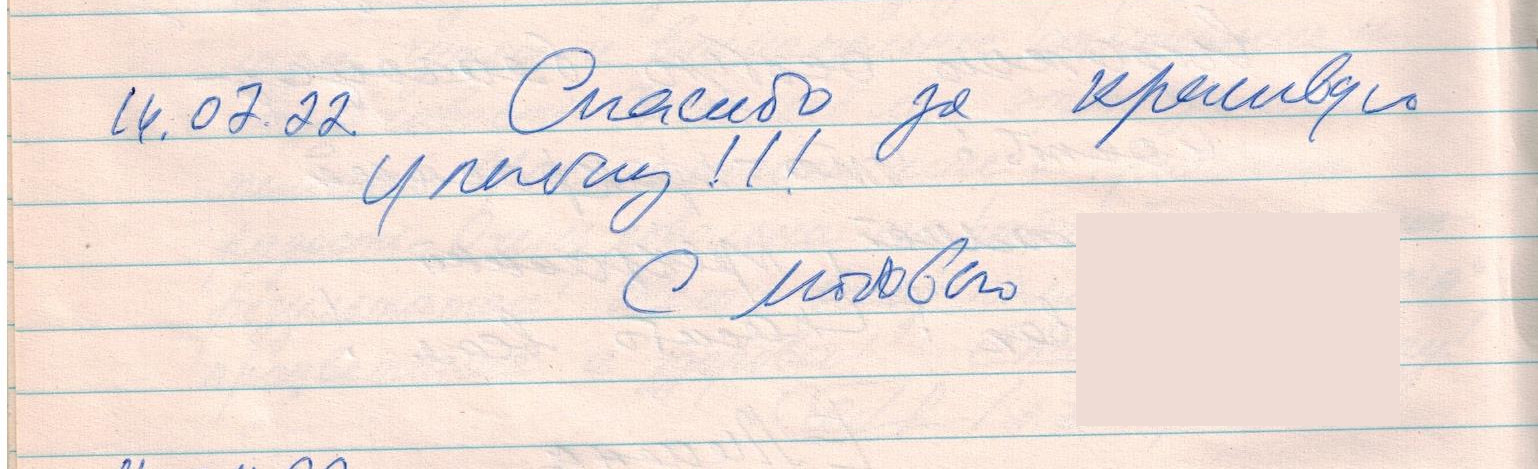 14.07.22 Спасибо за красивую
улыбку!!!
С любовью